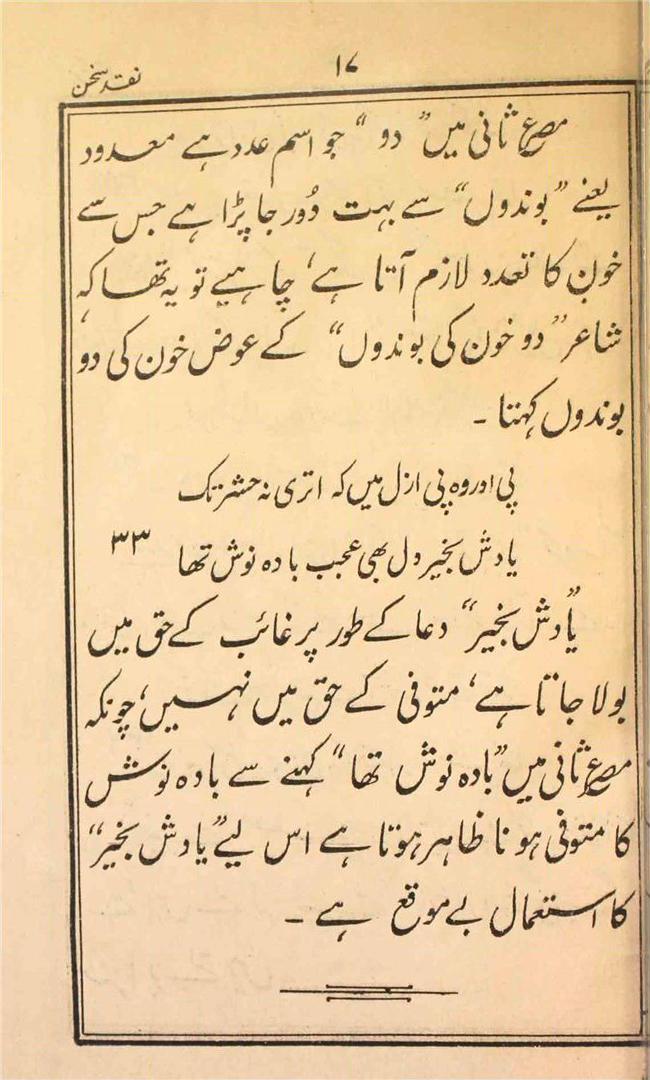 ۱۷
نقد سخن
مصرع ثانی میں ”دو“ جو اسم عدد ہے معدود
یعنے ”بوندوں“ سے بہت دُور جا پڑا ہے جس سے
خون کا تعدد لازم آتا ہے، چاہیے تو یہ تھا کہ
شاعر ”دو خون کی بوندوں“ کے عوض خون کی دو
بوندوں کہتا ۔
پی اور وہ پی ازل میں کہ اتری نہ حشر تک
یادش بخیر دل بھی عجب بادہ نوش تھا ۳۳
”یادش بخیر“ دعا کے طور پر غائب کے حق میں
بولا جاتا ہے، متوفی کے حق میں نہیں، چونکہ
مصرع ثانی میں ”بادہ نوش تھا“ کہنے سے بادہ نوش
کا متوفی ہونا ظاہر ہوتا ہے اس لیے ”یادش بخیر“
کا استعمال بے موقع ہے ۔